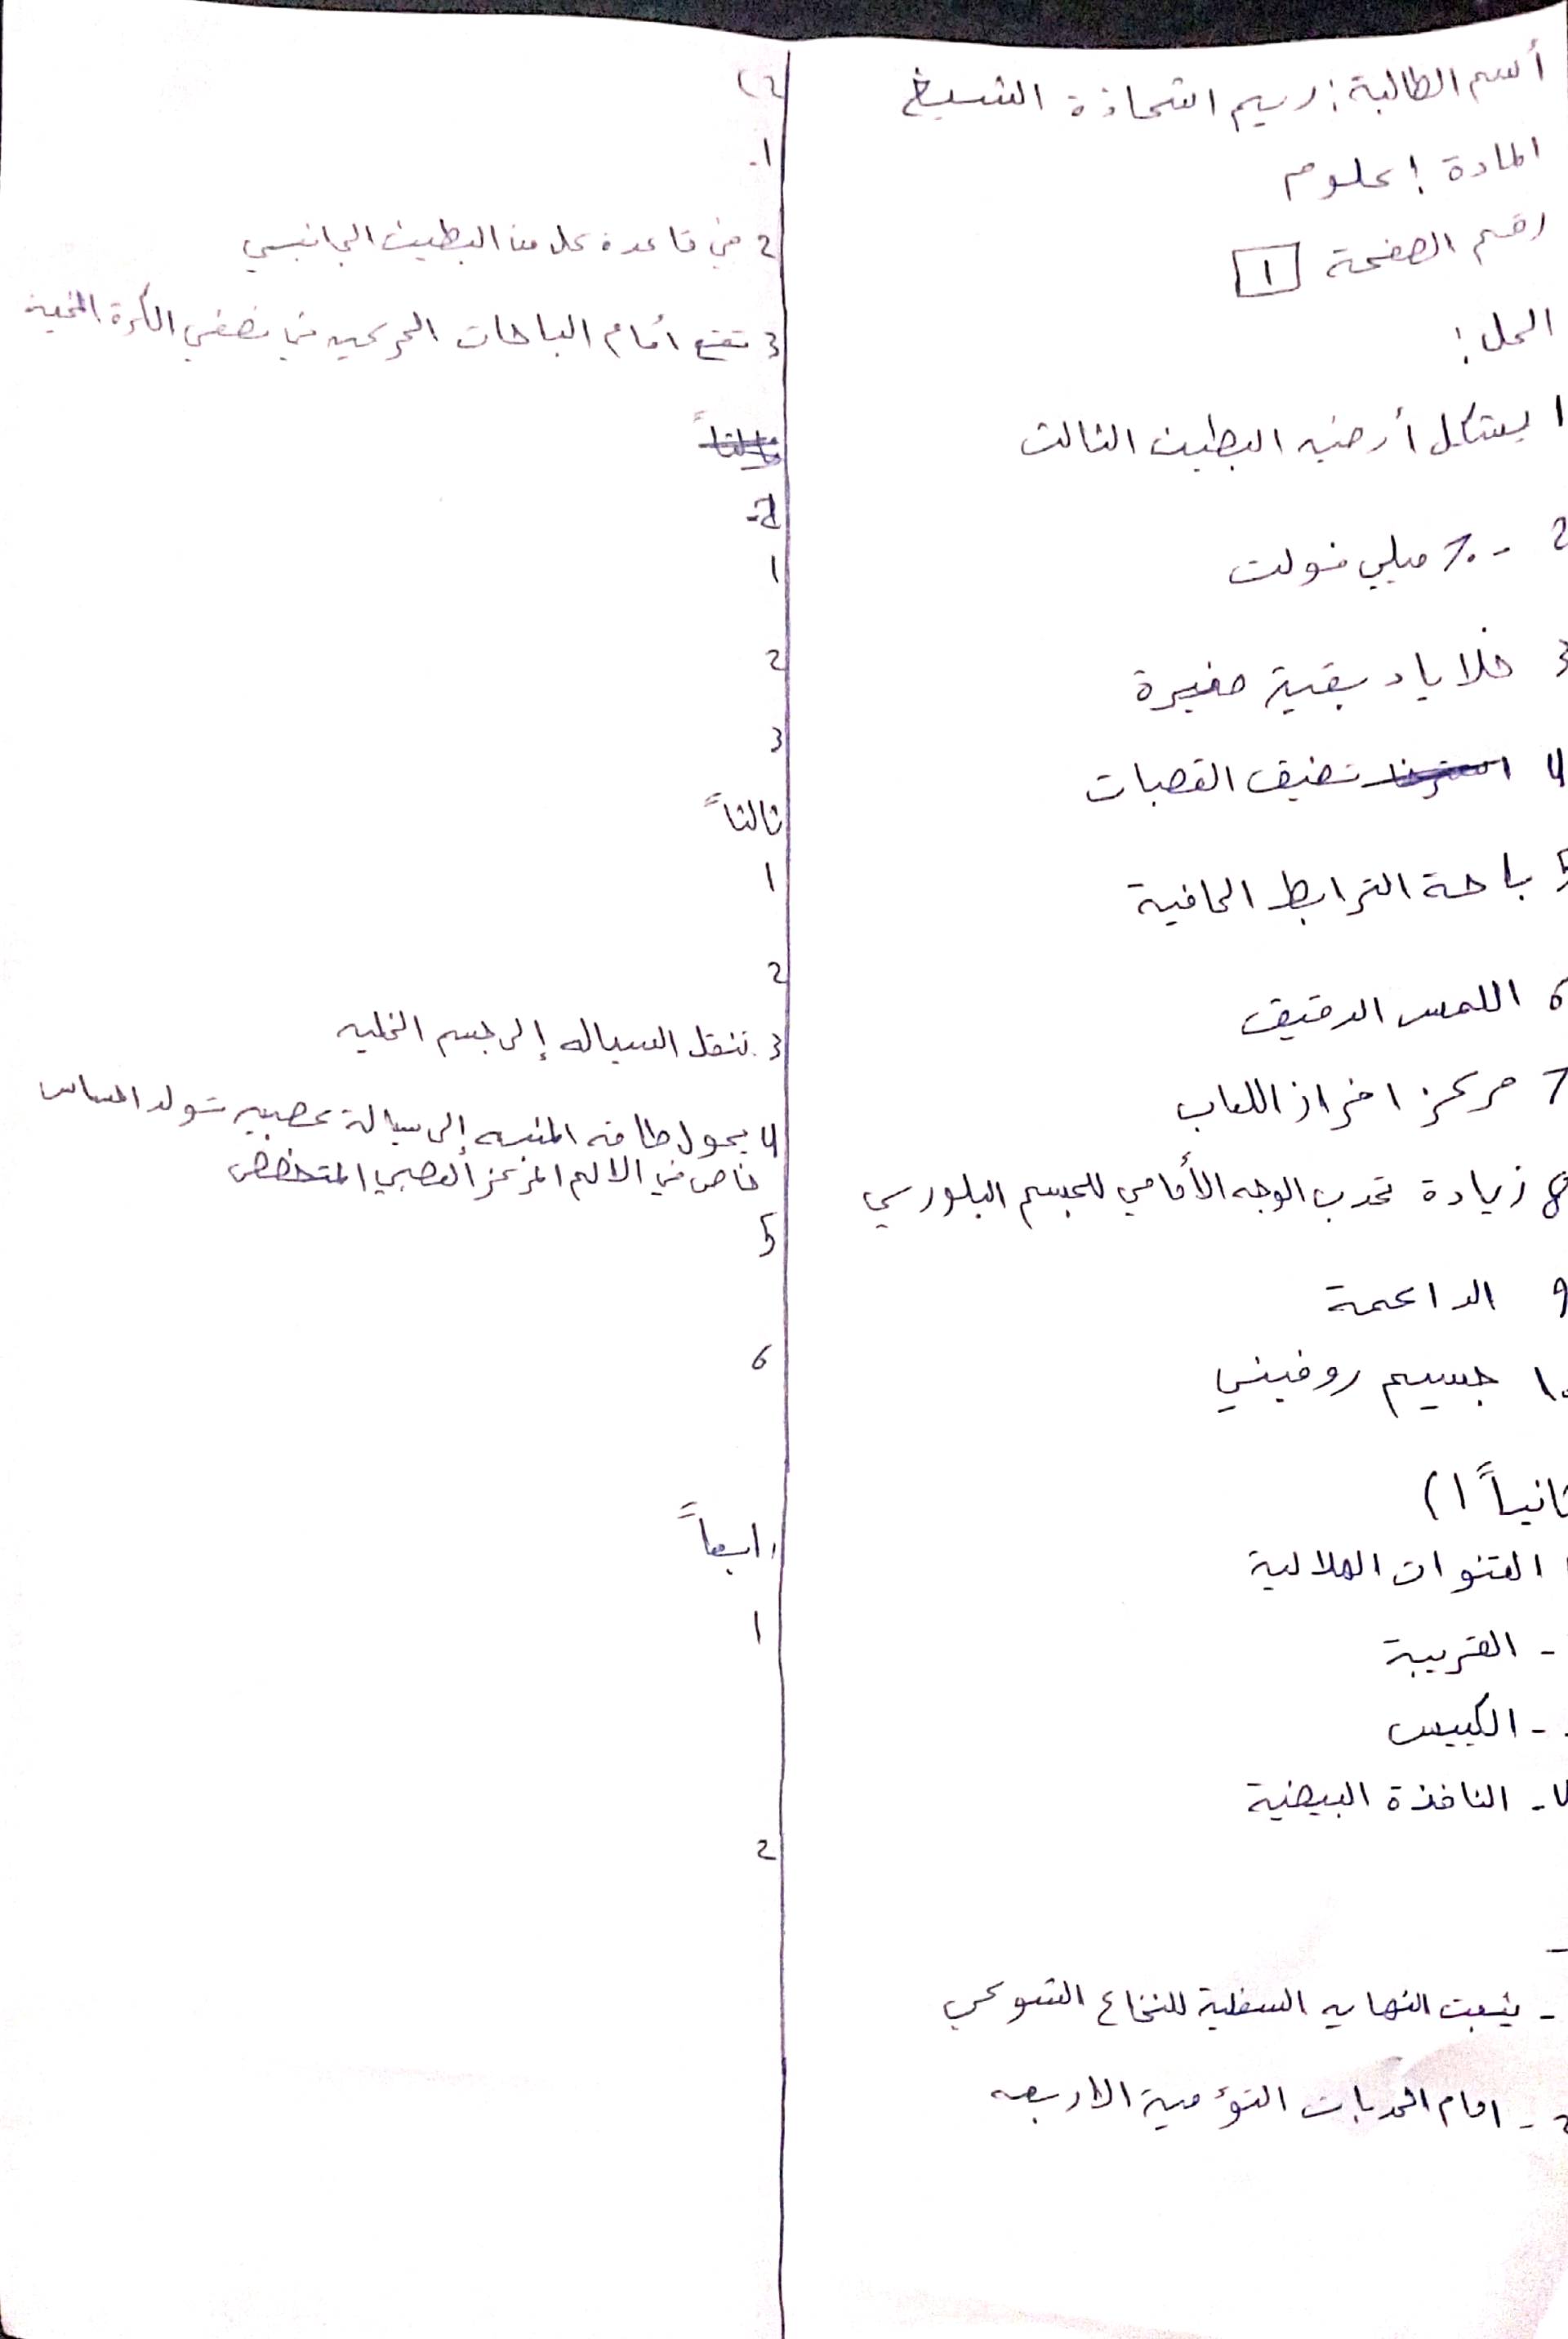 أسم الطالبة: ريم اشحاذة الشيخ
المادة : علوم
رقم الصفحة 1
الحل :
1 يشكل أرضيه البطين الثالث
2 -70 ميلي فولت
3 خلايا دبقية صغيرة
4 تضيق القصبات
5 باحة الترابط الحافية
6 اللمس الدقيق
7 مركز افراز اللعاب
8 زيادة تحدب الوجه الأمامي للجسم البلوري
9 الداعمة
10 جسيم روفيني
ثانياً 1)
1 القنوات الهلالية
- القريبة
- الكييس
4- النافذة البيضية
-
- يثبت النهايه السفلية للنخاع الشوكي
2- امام الحدبات التوؤمية الاربعه
2)
1-
2 في قاعدة كل من البطين الجانبي
3 تقع أمام الباحات الحركيه في نصفي الكرة المخية
2-
1
2
3
ثالثاً
1
2
3. تنقل السياله إلى جسم الخليه
4 يحول طاقه المنبه إلى سيالة عصبيه تولد احساس
خاص في المركز العصبي المتخصص
5
6
رابعاً
1
2